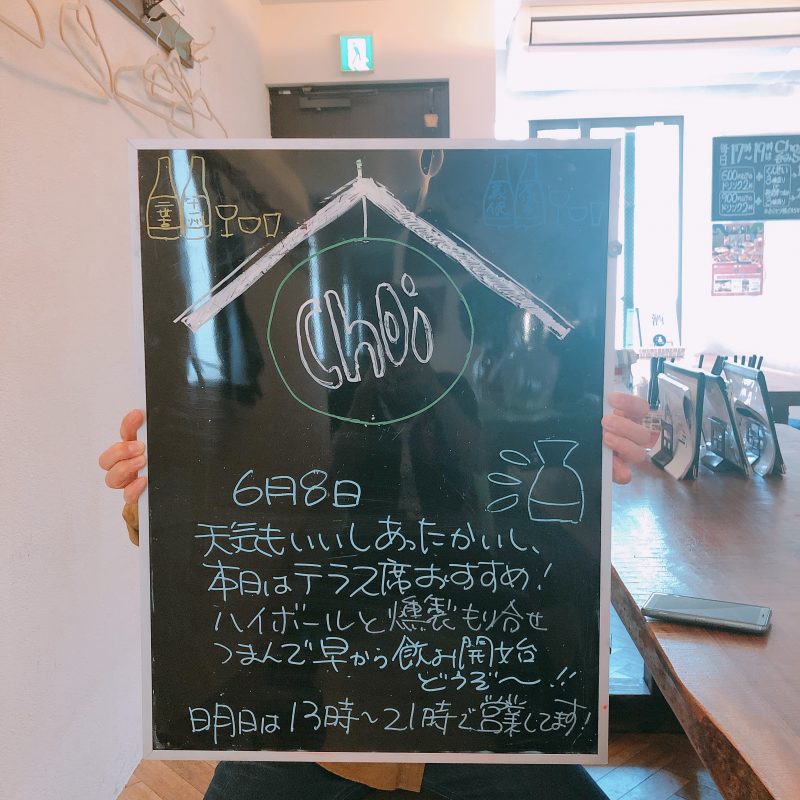 Choi
6月8日
天気もいいしあったかいし、
本日はテラス席おすすめ!
ハイボールと燻製もり合せ
つまんで早から飲み開始
どうぞ〜!!
明日は13時〜21時で営業してます!
二葉
千州
毎日17時〜19時は
600円で
ドリンク2杯
900円で
ドリンク3杯